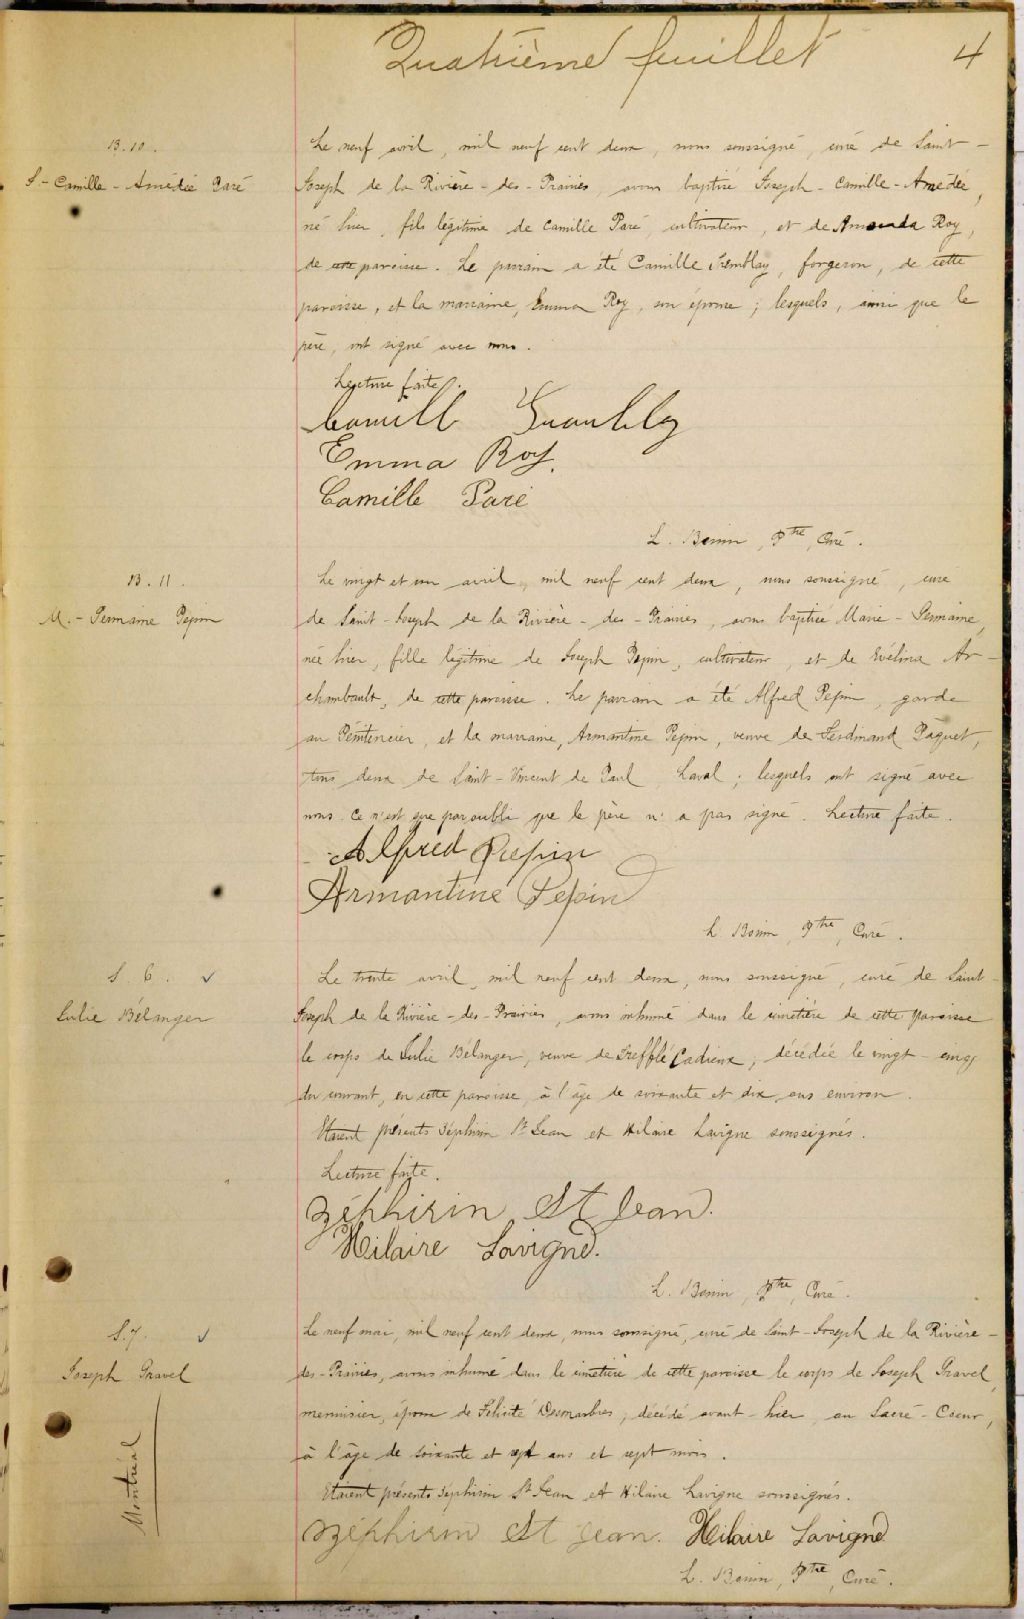 Quatrième feuillet
4
B. 10.
J - Camille - Amédée Paré
Le neuf avril, mil neuf cent deux, nous soussigné, curé de Saint-
Joseph de la Rivière-des-Prairies, avons baptisé Joseph-Camille-Amédée,
né hier, fils légitime de Camille Paré, cultivateur, et de Amanda Roy,
de cette paroisse. Le parrain a été Camille Tremblay, forgeron, de cette
paroisse, et la marraine, Emma Roy, son épouse; lesquels, ainsi que le
père, ont signé avec nous.
Lecture faite.
Camill Trambley
Emma Roy.
Camille Paré
L. Bonin, Ptre, Curé.
B. 11.
M. - Germaine Pepin
Le vingt et un avril, mil neuf cent deux, nous soussigné, curé
de Saint-Joseph de la Rivière-des-Prairies, avons baptisé Marie-Germaine,
née hier, fille légitime de Joseph Pepin, cultivateur, et de Evélina Ar-
chambault, de cette paroisse. Le parrain a été Alfred Pepin, garde
au Pénitencier, et la marraine, Armantine Pepin, veuve de Ferdinand Paquet,
tous deux de Saint-Vincent de Paul, Laval; lesquels ont signé avec
nous. Ce n'est que par oubli que le père n'a pas signé. Lecture faite.
Alfred Pepin
Armantine Pepin
L. Bonin, Ptre, Curé.
S. 6.
Julie Bélanger
Le trente avril, mil neuf cent deux, nous soussigné, curé de Saint-
Joseph de la Rivière-des-Prairies, avons inhumé dans le cimetière de cette paroisse
le corps de Julie Bélanger, veuve de Trefflé Cadieux, décédée le vingt-cinq
du courant, en cette paroisse, à l'âge de soixante et dix ans environ.
Étaient présents Zéphirin St Jean et Hilaire Lavigne soussignés.
Lecture faite.
Zéphirin St Jean.
Hilaire Lavigne.
L. Bonin, Ptre, Curé.
S. 7.
Joseph Gravel
Montréal
Le neuf mai, mil neuf cent deux, nous soussigné, curé de Saint-Joseph de la Rivière-
des-Prairies, avons inhumé dans le cimetière de cette paroisse le corps de Joseph Gravel,
menuisier, époux de Félicité Desmarbres, décédé avant-hier, au Sacré-Coeur,
à l'âge de soixante et sept ans et sept mois.
Étaient présents Zéphirin St Jean et Hilaire Lavigne soussignés.
Zéphirin St Jean. Hilaire Lavigne
L. Bonin, Ptre, Curé.